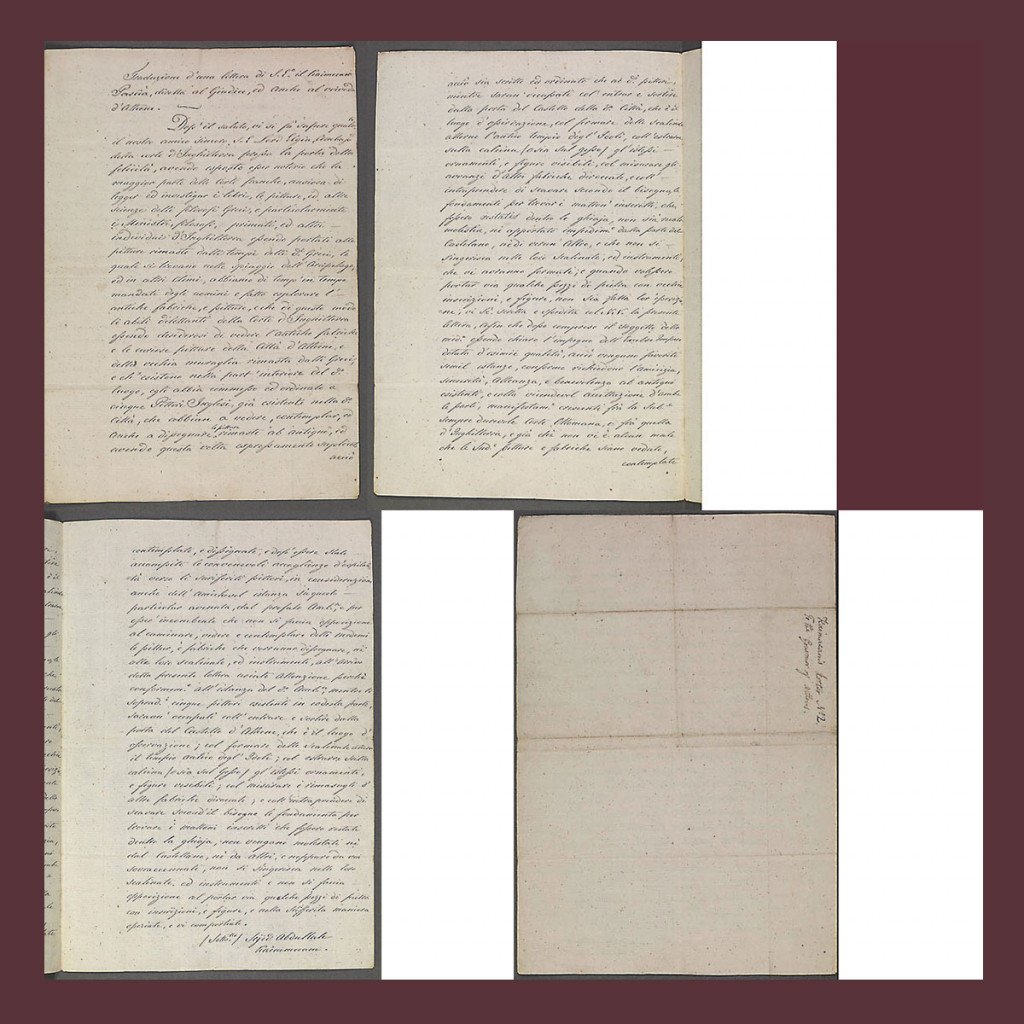 Traduzione d'una lettera di S. E. il Kaimmecam
Pascià, diretta al Giudice, ed anche al Vaivoda
d'Athene.
Dopo il saluto, vi si fà sapere qualm.te
il nostro amico sincero, S. E. Lord Elgin, Ambas.re
della corte d'Inghilterra presso la porta della
felicità, avendo esposto esser notorio che la
maggior parte delle Corti franche, ansiose di
legger ed investigar i libri, le pitture, ed altre
scienze delli filosofi Greci, e particolarmente
i Ministri, filosofi, primati, ed altri
individui d'Inghilterra essendo portati alle
pitture rimaste dalli tempi delli d.i Greci, le
quali si trovano nelle spiaggie dell'Arcipelago,
ed in altri climi, abbiano di temp' in tempo
mandati degli uomini e fatto esplorare l'
antiche fabriche, e pitture, e che di questo modo
li abili dilettanti della Corte d'Inghilterra
essendo desiderosi di vedere l'antiche fabriche
e le curiose pitture della Città d'Athene, e
della vecchia muraglia rimasta dalli Greci,
e ch' esistono nella part' interiore del d.o
luogo, egli abbia commesso ed ordinato a
cinque Pittori Inglesi, già esistenti nella d.a
Città, che abbian a vedere, contemplar, ed
anche a disegnare le pitture rimaste ab antiquo, ed
avendo questa volta espressamente supplicato
acciò
acciò sia scritto ed ordinato che ai d.i pittori,
mentre saran occupati col entrar e sortire
dalla porta del Castello della d.a Città, che è il
luogo d'osservazione, col formare delle scalinate
attorno l'antico tempio degl' Idoli, coll' estrarre
sulla calcina (osia sul gesso) gl' istessi
ornamenti, e figure visibili, col misurare gli
avvanzi d'altre fabriche diroccate, e coll'
intraprendere di scavare secondo il bisogno le
fondamenta per trovar i mattoni inscritti, che
fossero restati dentro la ghiaja, non sia recata
molestia, nè apportato impedim.to dalla parte del
Castellano, nè di verun altro, e che non si
ingerisca nelle loro scalinate, ed instrumenti,
che vi avranno formati; e quando volessero
portar via qualche pezzi di pietra con vecchie
inscrizioni, e figure, non sia fatta lor' opposizio-
ne, vi si è scritta e spedita col N.N. la presente
lettera, afin che dopo compreso il soggetto della
med.a essendo chiaro l'impegno dell' Eccelso Impero
dotato d'esimie qualità, acciò vengano favorite
simil istanze, conforme richiedono l'amicizia,
sincerità, Alleanza, e benevolenza ab antiquo
esistenti, e colla vicendevol accettazione d'ambe
le parti, manifestam.te crescenti frà la Sub.e
sempre durevole Corte Ottomana, e frà quella
d'Inghilterra, e già chè non vi è alcun male
che le sud.e pitture e fabriche siano vedute,
contemplate
contemplate, e dissegnate; e dopo essere state
accompite le convenevoli accoglienze d'ospitali-
tà verso li suriferiti pittori, in considerazione
anche dell' amichevol istanza su questo
particolar avenuta, dal prefato Amb.re e per
esser incombente che non si faccia opposizione
al caminare, vedere e contemplare delli medemi
le pitture, e fabriche che vorranno disegnare, nè
alle loro scalinate, ed instrumenti, all' arrivo
della presente lettera usiate attenzione perchè
conformem.te all' istanza del d.o Amb.re mentre li
soprad.i cinque pittori esistenti in codesta parte,
saranno occupati coll' entrare e sortire dalla
porta del Castello d'Athene, che è il luogo d'
osservazione; col formare delle scalinate attorno
il tempio antico degl' Idoli; col estrarre sulla
calcina (osia sul gesso) gl' istessi ornamenti,
e figure visibili; col misurare i rimasugli d'
altre fabriche diroccate; e coll' intraprendere di
scavare second' il bisogno le fondamenta per
trovare i mattoni inscritti che fossero restati
dentro la ghiaja, non vengano molestati nè
dal Castellano, nè da altri, e neppure da voi
sovraccennati, non si ingerisca nelle loro
scalinate, ed instrumenti e non si faccia
opposizione al portar via qualche pezzi di pietra
con inscrizioni, e figure, e nella suriferita maniera
operiate, e vi comportiate.
(Sott.o) Sejid Abdullah
Kaimmecam.
Kaimacam's letter No 2.
To the Governor of Athens.